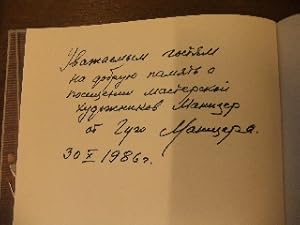 Уважаемым гостям
на добрую память о
посещении мастерской
художников Манизер
от Гуго Манизера.
30 X 1986 г.